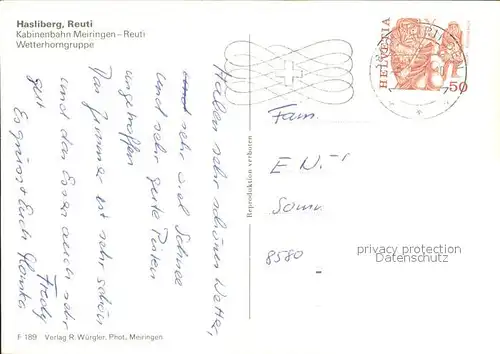 Hasliberg, Reuti
Kabinenbahn Meiringen–Reuti
Wetterhorngruppe
Haben sehr schönes Wetter,
sehr viel Schnee
und sehr gute Pisten
angetroffen
Das Zimmer ist sehr schön
und das Essen auch sehr
gut
Fredy
Es grüsst Euch
F 189 Verlag R. Würgler, Phot. Meiringen
Reproduktion verboten
HELVETIA
50
Fam.
E N.
8580
privacy protection
Datenschutz